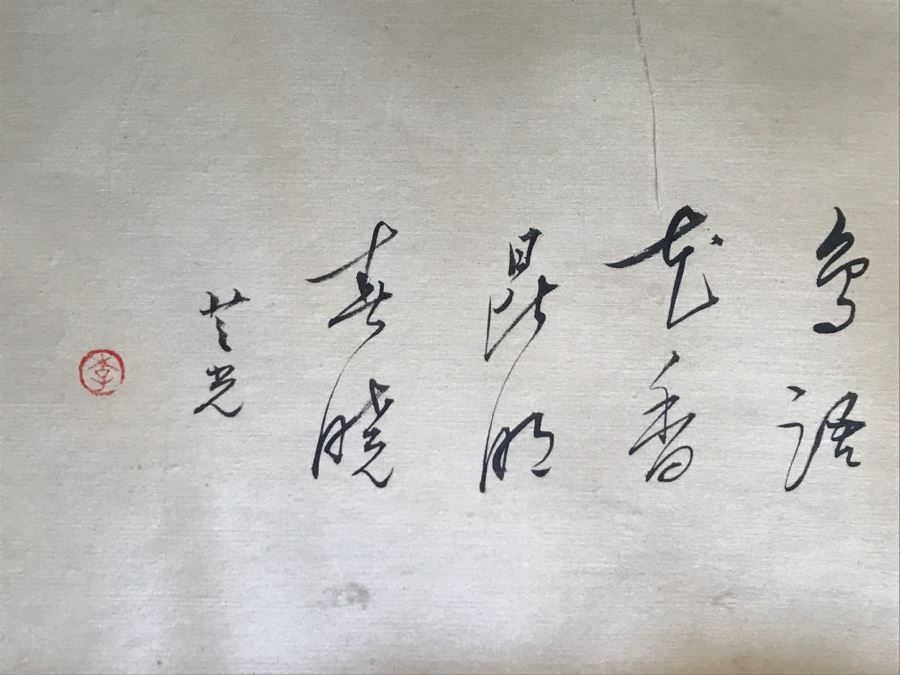 鸟语
花香
昆明
春晓
光
李